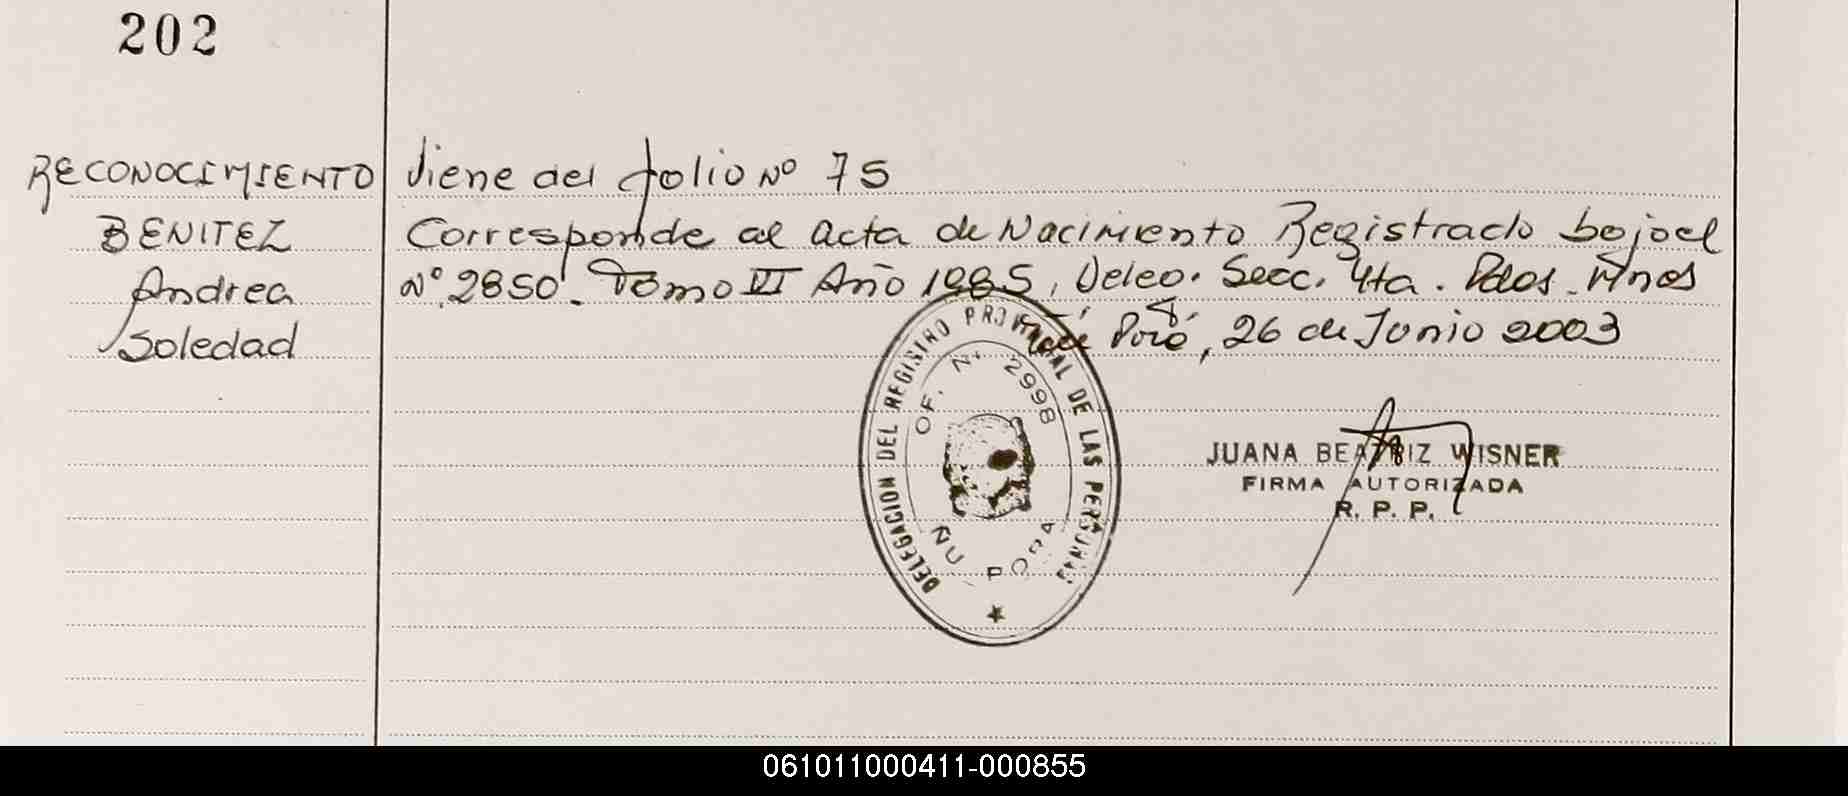 202
RECONOCIMIENTO
BENITEZ
Andrea
Soledad
Viene del folio Nº 75
Corresponde al acta de Nacimiento Registrado bajo el
Nº 2850. Tomo VI Año 1985, Deleg. Secc. 4ta. Pdas. Mnes
Porá, 26 de Junio 2003
DELEGACION DEL REGISTRO PROVINCIAL DE LAS PERSONAS
OF. Nº 2998
ÑU PORA
JUANA BEATRIZ WISNER
FIRMA AUTORIZADA
R. P. P.
061011000411-000855